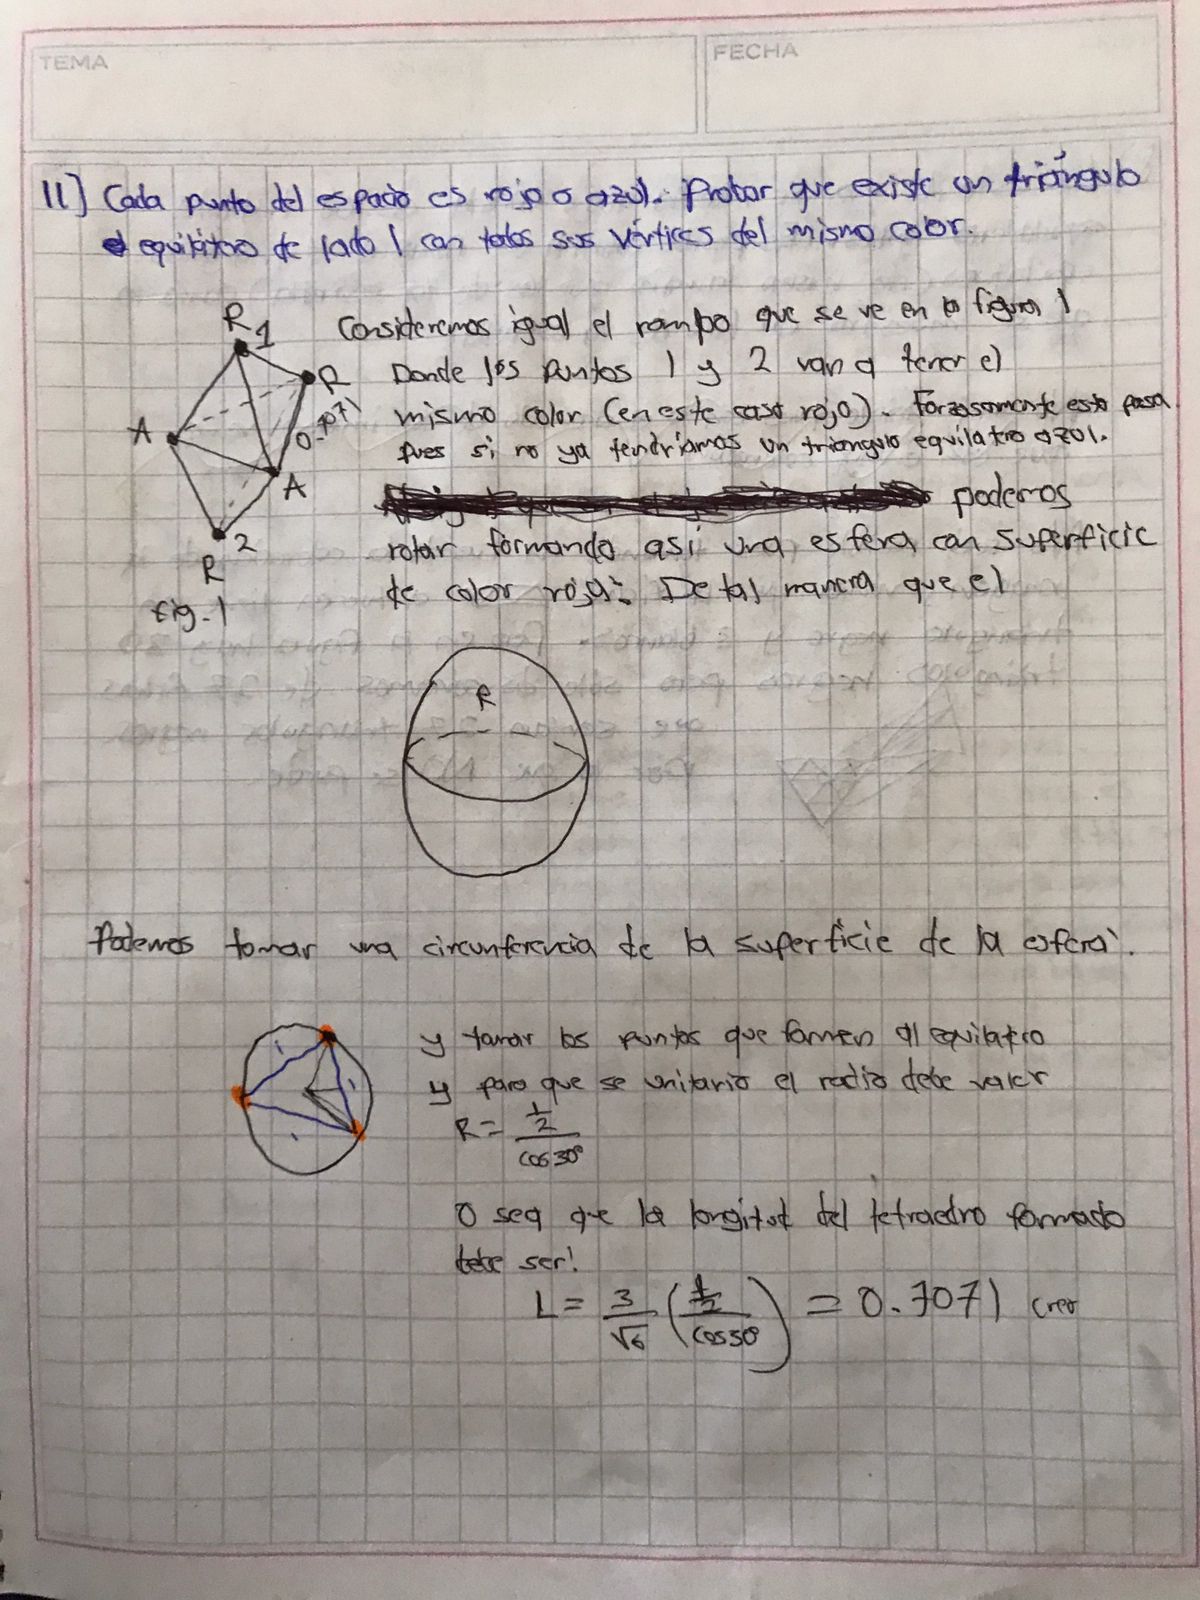 TEMA
FECHA
11] Cada punto del espacio es rojo o azul. Probar que existe un triángulo
equilátero de lado 1 con todos sus vértices del mismo color.
R 1
Consideremos igual el rombo que se ve en la figura 1
R
Donde los puntos 1 y 2 van a tener el
0.7071
mismo color (en este caso rojo). Forzosamente esto pasa
A
pues si no ya tendriamos un triangulo equilatro azul.
A
podemos
2
rotar formando asi una esfera con superficie
R
de color roja: De tal manera que el
Fig. 1
R
Podemos tomar una circunferencia de la superficie de la esfera.
y tomar los puntos que formen al equilatro
1
1
1
y para que se unitario el radio debe valer
R = 1/2 / cos30°
O sea que la longitud del tetraedro formado
debe ser!
L = 3/√6 (1/2 / cos30°) = 0.7071 creo